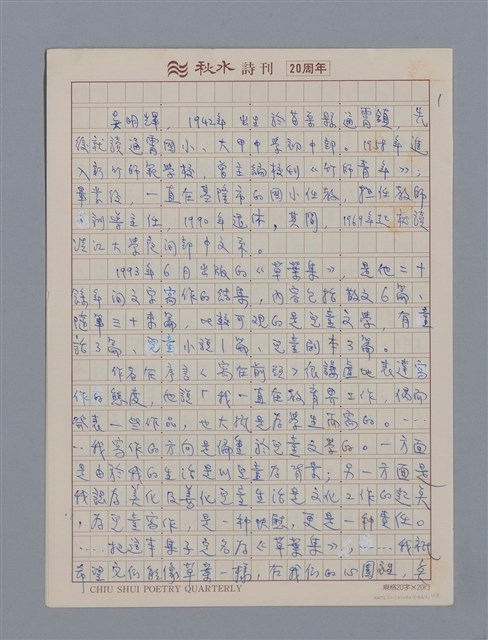 秋水詩刊 20周年
1
吳明輝，1942年出生於苗栗縣通霄鎮，先
後就讀通霄國小、大甲中學初中部。1958年進
入新竹師範學校，曾主編校刊《竹師青年》；
畢業後，一直在基隆市的國小任教，擔任教師
、訓導主任，1990年退休。其間，1969年起就讀
淡江大學夜間部中文系。
1993年6月出版的《草葉集》，是他二十
餘年間文字寫作的結集，內容包括散文6篇、
隨筆三十來篇，比較可觀的是兒童文學，有童
話3篇、兒童小說1篇、兒童劇本3篇。
作者在序言《寫在前頭》很謙虛地表達寫
作的態度，他說「我一直在教育界工作，偶而
發表一些作品，也大抵是為學生而寫的。……
…我寫作的方向是偏重於兒童文學的。一方面
是由於我的生活是以兒童為背景；另一方面是
我認為美化及善化兒童生活是文化工作的起點
，為兒童寫作，是一種快慰，更是一種責任。
……把這本集子定名為《草葉集》，……我祇
希望它們能像草葉一樣，在我們的心園裡，
CHIU SHUI POETRY QUARTERLY
稿紙20字×20行